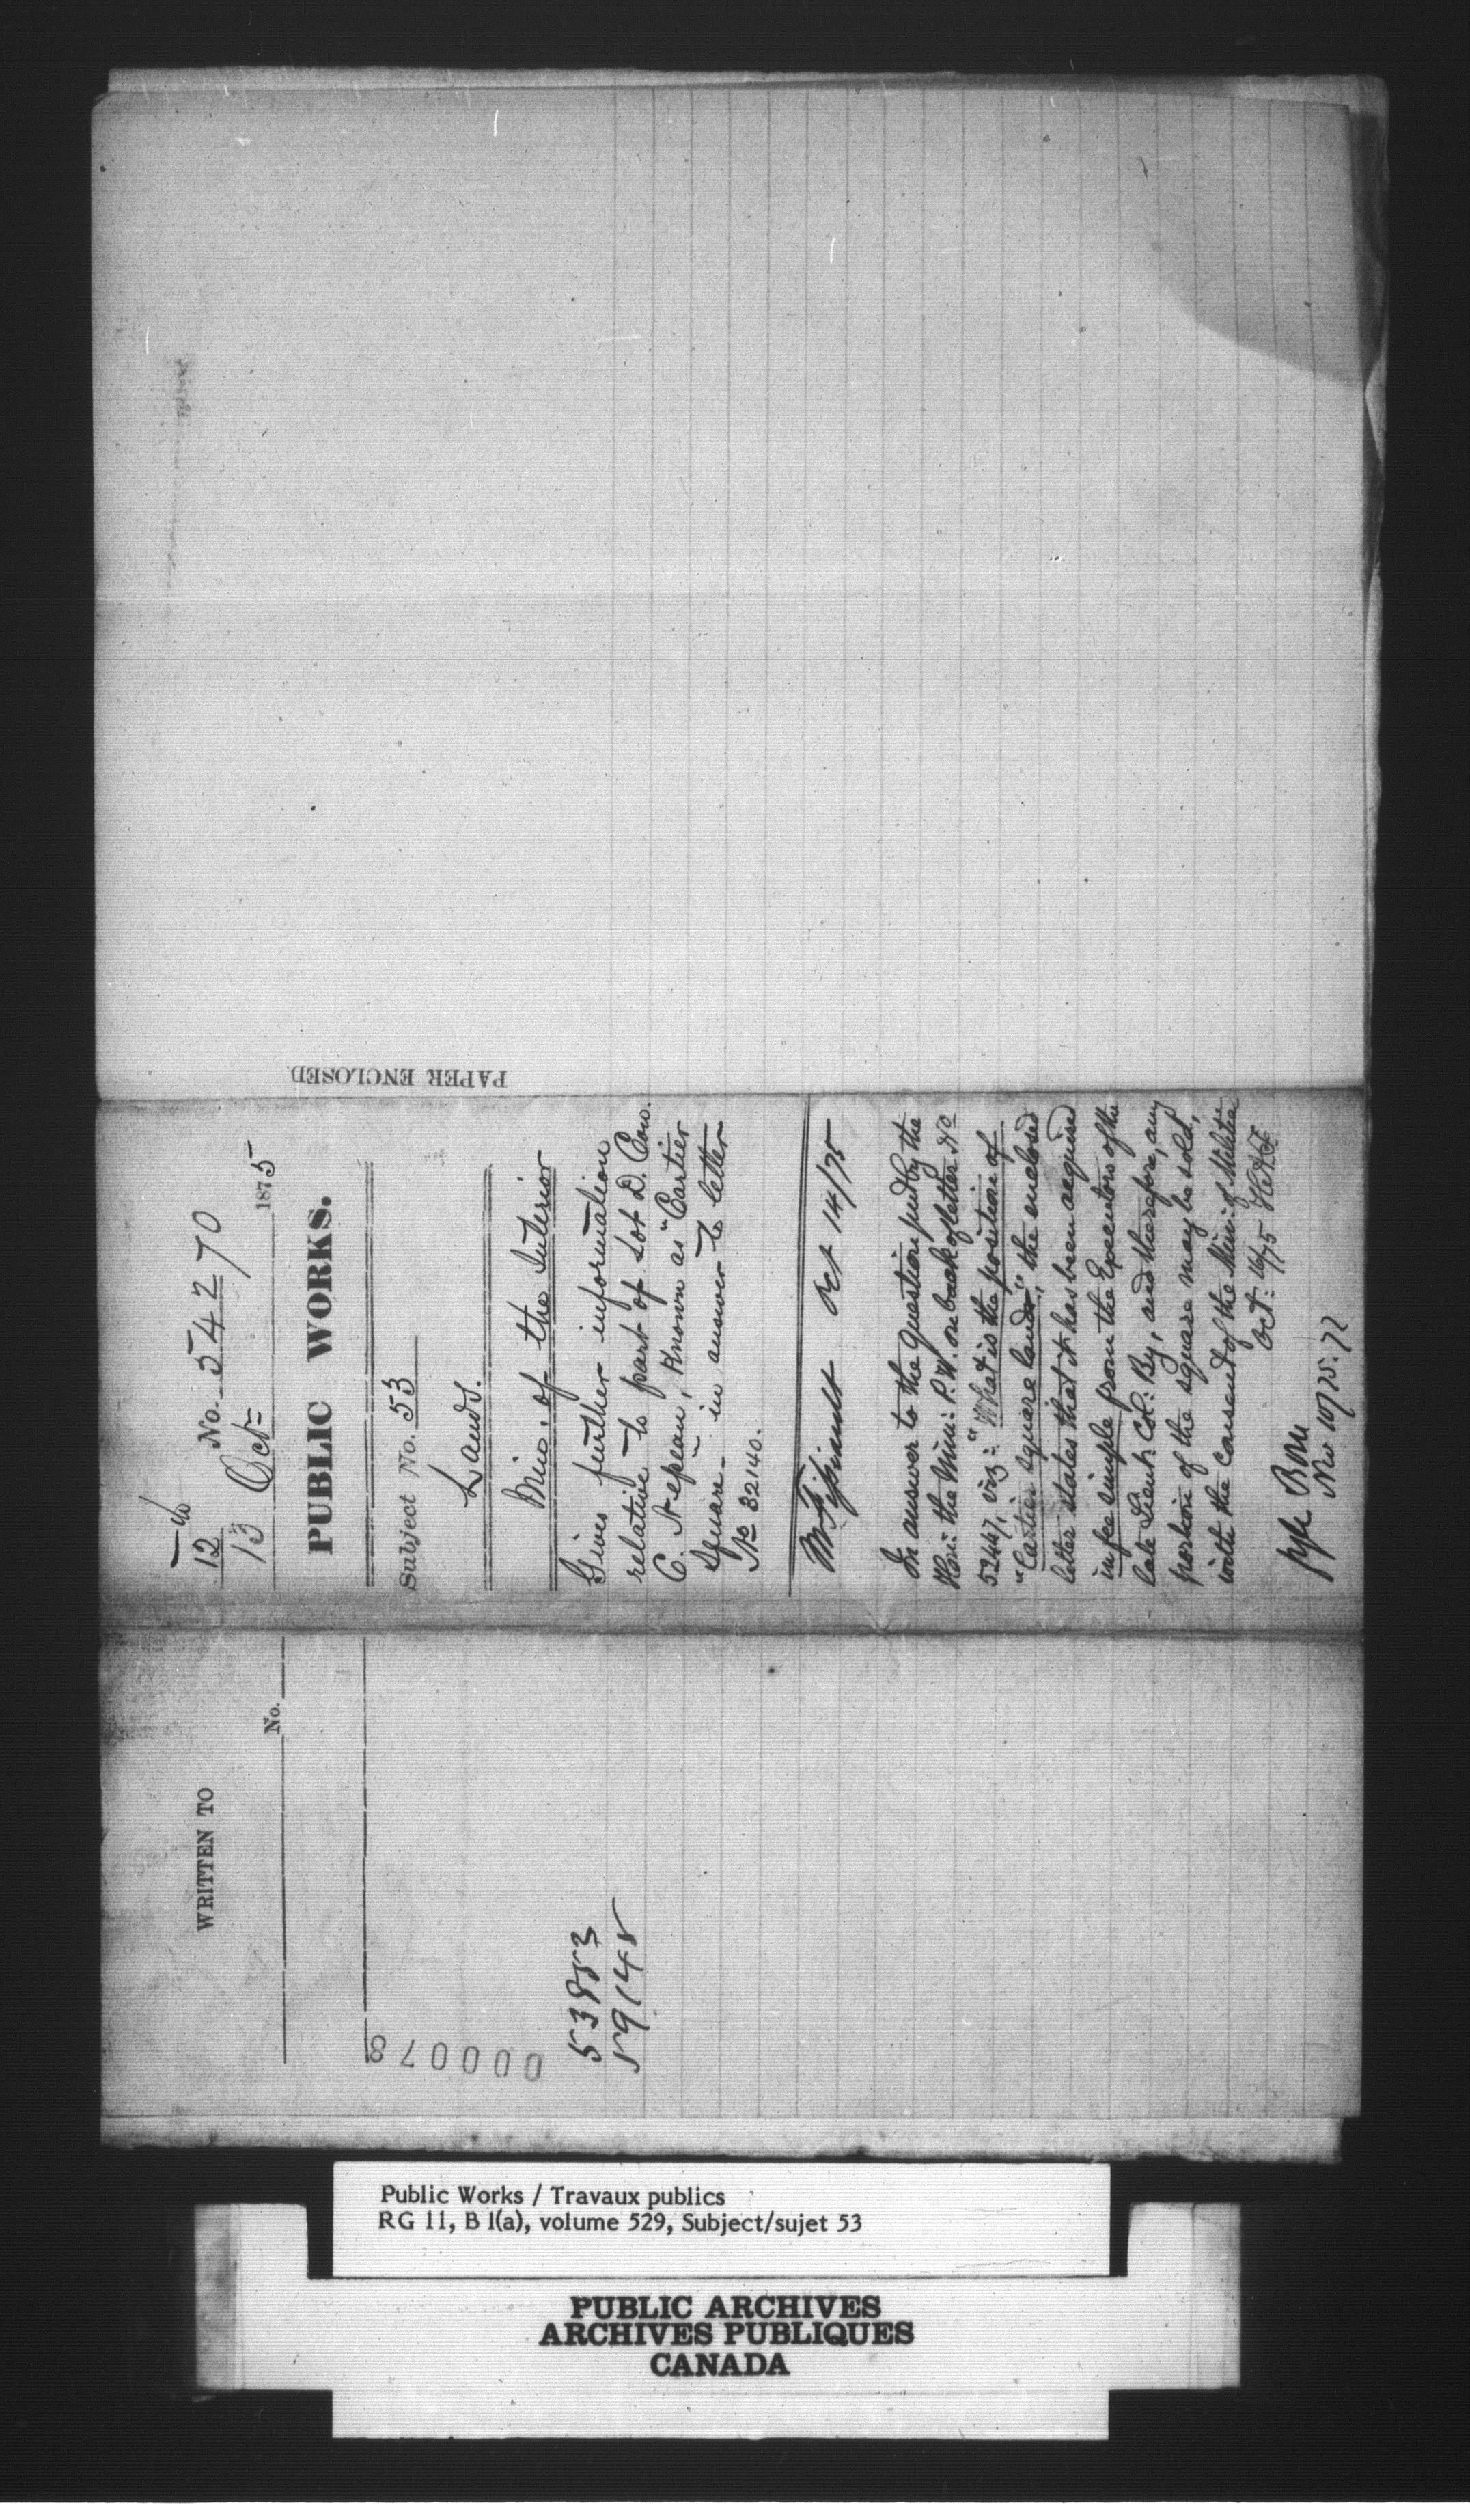 12 No. 54270
13 Oct= 1875
PUBLIC WORKS.
Subject No. 53
Lands.
Min. of the Interior
Gives further information
relative to part of Lot D. Con.
C. Nepean, Known as "Cartier
Square" - in answer to letter
No 32140.
Oct 14/75
In answer to the question put by the
Hon: the Min: P.W. on back of letter No
52447, viz: "What is the position of
"Cartier Square lands," the enclosed
letter states that it has been acquired
in fee simple from the Executors of the
late Lieut. Col: By, and therefore, any
portion of the square may be sold,
with the consent of the Min: of Militia
Oct: 16/75
Nov 10/75.
PAPER ENCLOSED
WRITTEN TO
No.
000078
53883
59148
Public Works / Travaux publics
RG 11, B 1(a), volume 529, Subject/sujet 53
PUBLIC ARCHIVES
ARCHIVES PUBLIQUES
CANADA